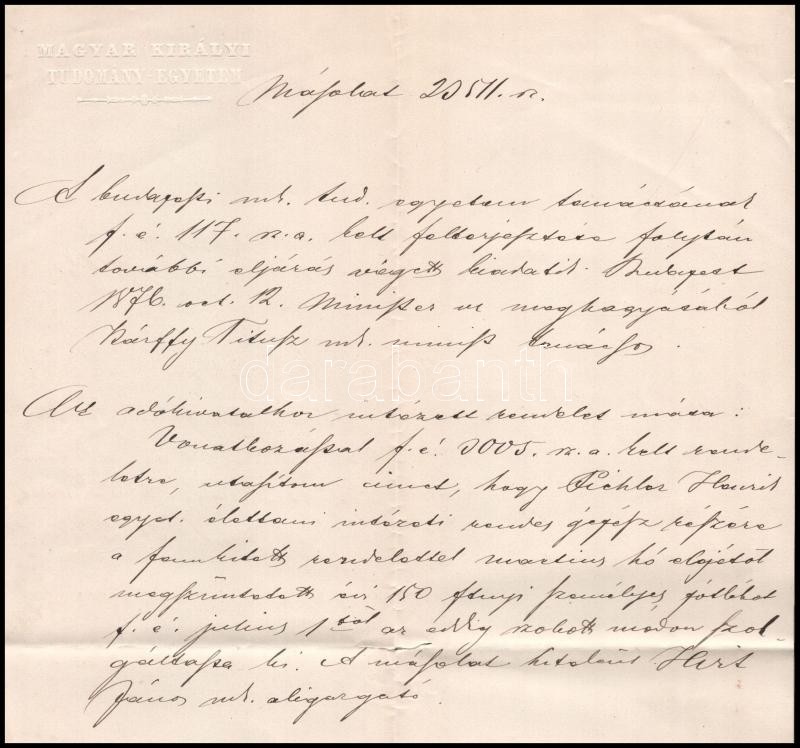 MAGYAR KIRÁLYI
TUDOMÁNY-EGYETEM
Másolat 20511. sz.
A budapesti m. k. tud. egyetem tanácsának
f. é. 117. sz. a. kelt felterjesztése folytán
további eljárás végett kiadatik. Budapest
1876. oct. 12. Miniszter úr meghagyásából
Kárffy Titusz mk. minist. tanácsos.
darabanth
Az adóhivatalhoz intézett rendelet mása:
Vonatkozással f. é. 3005. sz. a. kelt rende-
letre, utasítom címet, hogy Pichler Henrik
egyet. élettani intézeti rendes gépész részére
a fennkitett rendelettel martius hó elejétől
megszüntetett évi 150 ftnyi személyes pótlékot
f. é. julius 1től az eddig szokott módon szol-
gáltassa ki. A másolat hiteléül. Hirt
János mk. aligazgató.